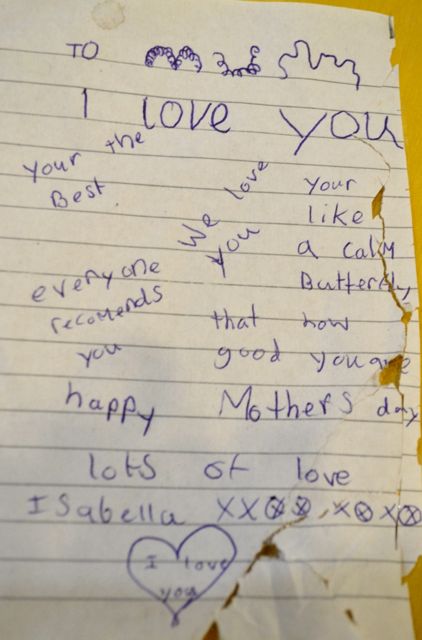 TO
I love you
Your the
Best
We love
you
Your
like
a calm
Butterfly
everyone
recomends
you
that how
good you are
happy Mothers day
lots of love
Isabella XXOO XOXO
I love
you